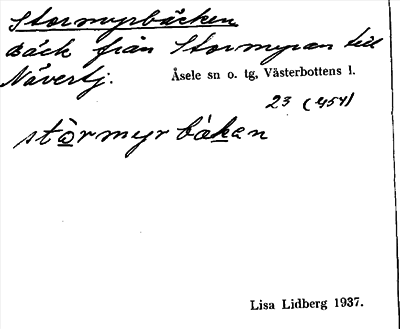 Stormyrbäcken
Bäck från Stormyran till
Nävertj.
Åsele sn o. tg, Västerbottens l.
23 (454)
stòrmyrbákan
Lisa Lidberg 1937.